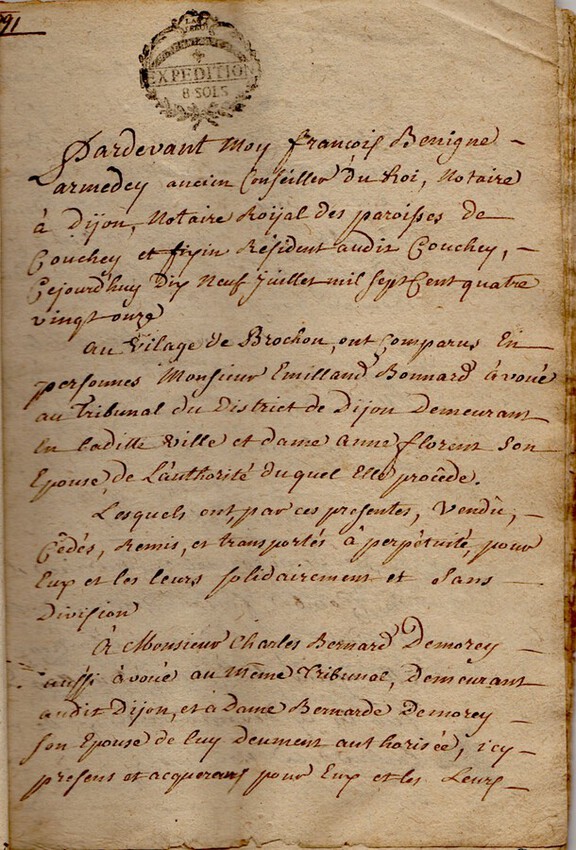 91
EXPEDITION
8 SOLS
Pardevant Moy françois Benigne
Larmedey ancien Conseiller du Roi, Notaire
à Dijon, Notaire Roÿal des paroisses de
Couchey et fixin Résident audit Couchey,
Cejourd'huy Dix Neuf juillet mil sept Cent quatre
vingt onze
au Vilage de Brochon, ont comparus En
personnes Monsieur Emilland Bonnard àvoué
au Tribunal du District de Dijon Demeurant
En laditte Ville et dame anne florent Son
Epouse, de L'authorité duquel Elle procêde.
Lesquels ont, par ces presentes, Vendù,
Cêdés, Remis, et transportés à perpétuité, pour
Eux et les leurs solidairement et Sans
Division
À Monsieur Charles Bernard Demorey
aussi àvoué au même Tribunal, Demeurant
audit Dijon, et à Dame Bernarde Demorey
son Epouse de luy Deument authorisée, icy
presens et acquerans pour Eux et les Leurs